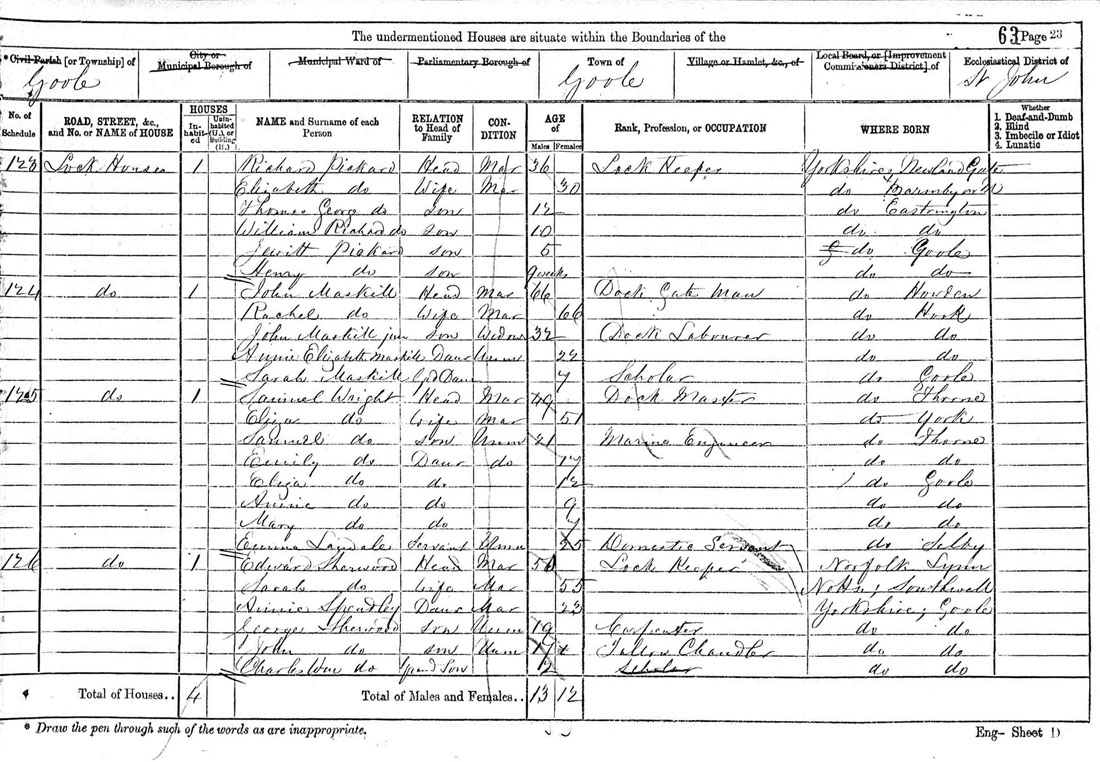 The undermentioned Houses are situate within the Boundaries of the
63 Page 23
*Civil Parish [or Township] of City or Municipal Borough of Municipal Ward of Parliamentary Borough of Town of Village or Hamlet, &c., of Local Board, or [Improvement Commissioners District] of Ecclesiastical District of
Goole Goole St John
No. of Schedule ROAD, STREET, &c., and No. or NAME of HOUSE HOUSES Inhabited Uninhabited (U.), or Building (B.) NAME and Surname of each Person RELATION to Head of Family CONDITION AGE of Males Females Rank, Profession, or OCCUPATION WHERE BORN Whether 1. Deaf-and-Dumb 2. Blind 3. Imbecile or Idiot 4. Lunatic
123 Lock Houses 1 Richard Pickard Head Mar 36 Lock Keeper Yorkshire; Newland Gate
Elizabeth do Wife Mar 30 do Barmby on
Thomas George do son 12 do Eastrington
William Richard do son 10 do do
Jewitt Pickard son 5 do Goole
Henry do son 9 weeks do do
124 do 1 John Maskill Head Mar 66 Dock Gate Man do Howden
Rachel do Wife Mar 66 do Hook
John Maskill jun son Widow 32 Dock Labourer do do
Annie Elizabeth Maskill Daur Unm 22 do do
Sarah Maskill Gd Daur 7 Scholar do Goole
125 do 1 Samuel Wright Head Mar 49 Dock Master do Thorne
Eliza do Wife Mar 51 do York
Samuel do son Unm 21 Marine Engineer do Thorne
Emily do Daur do 17 do do
Eliza do do 12 do Goole
Annie do do 9 do do
Mary do do 7 do do
Emma Servant Unm 25 Domestic Servant do Selby
126 do 1 Edward Sherwood Head Mar Lock Keeper Norfolk Lynn
Sarah do Wife Mar 55 Notts; Southwell
Annie Daur Mar 23 Yorkshire; Goole
George Sherwood son Unm 19 Carpenter do do
John do son Unm Tallow Chandler do do
Charles Wm do Grand Son 2 Scholar do do
Total of Houses.. 4 Total of Males and Females.. 13 12
* Draw the pen through such of the words as are inappropriate.
Eng- Sheet D